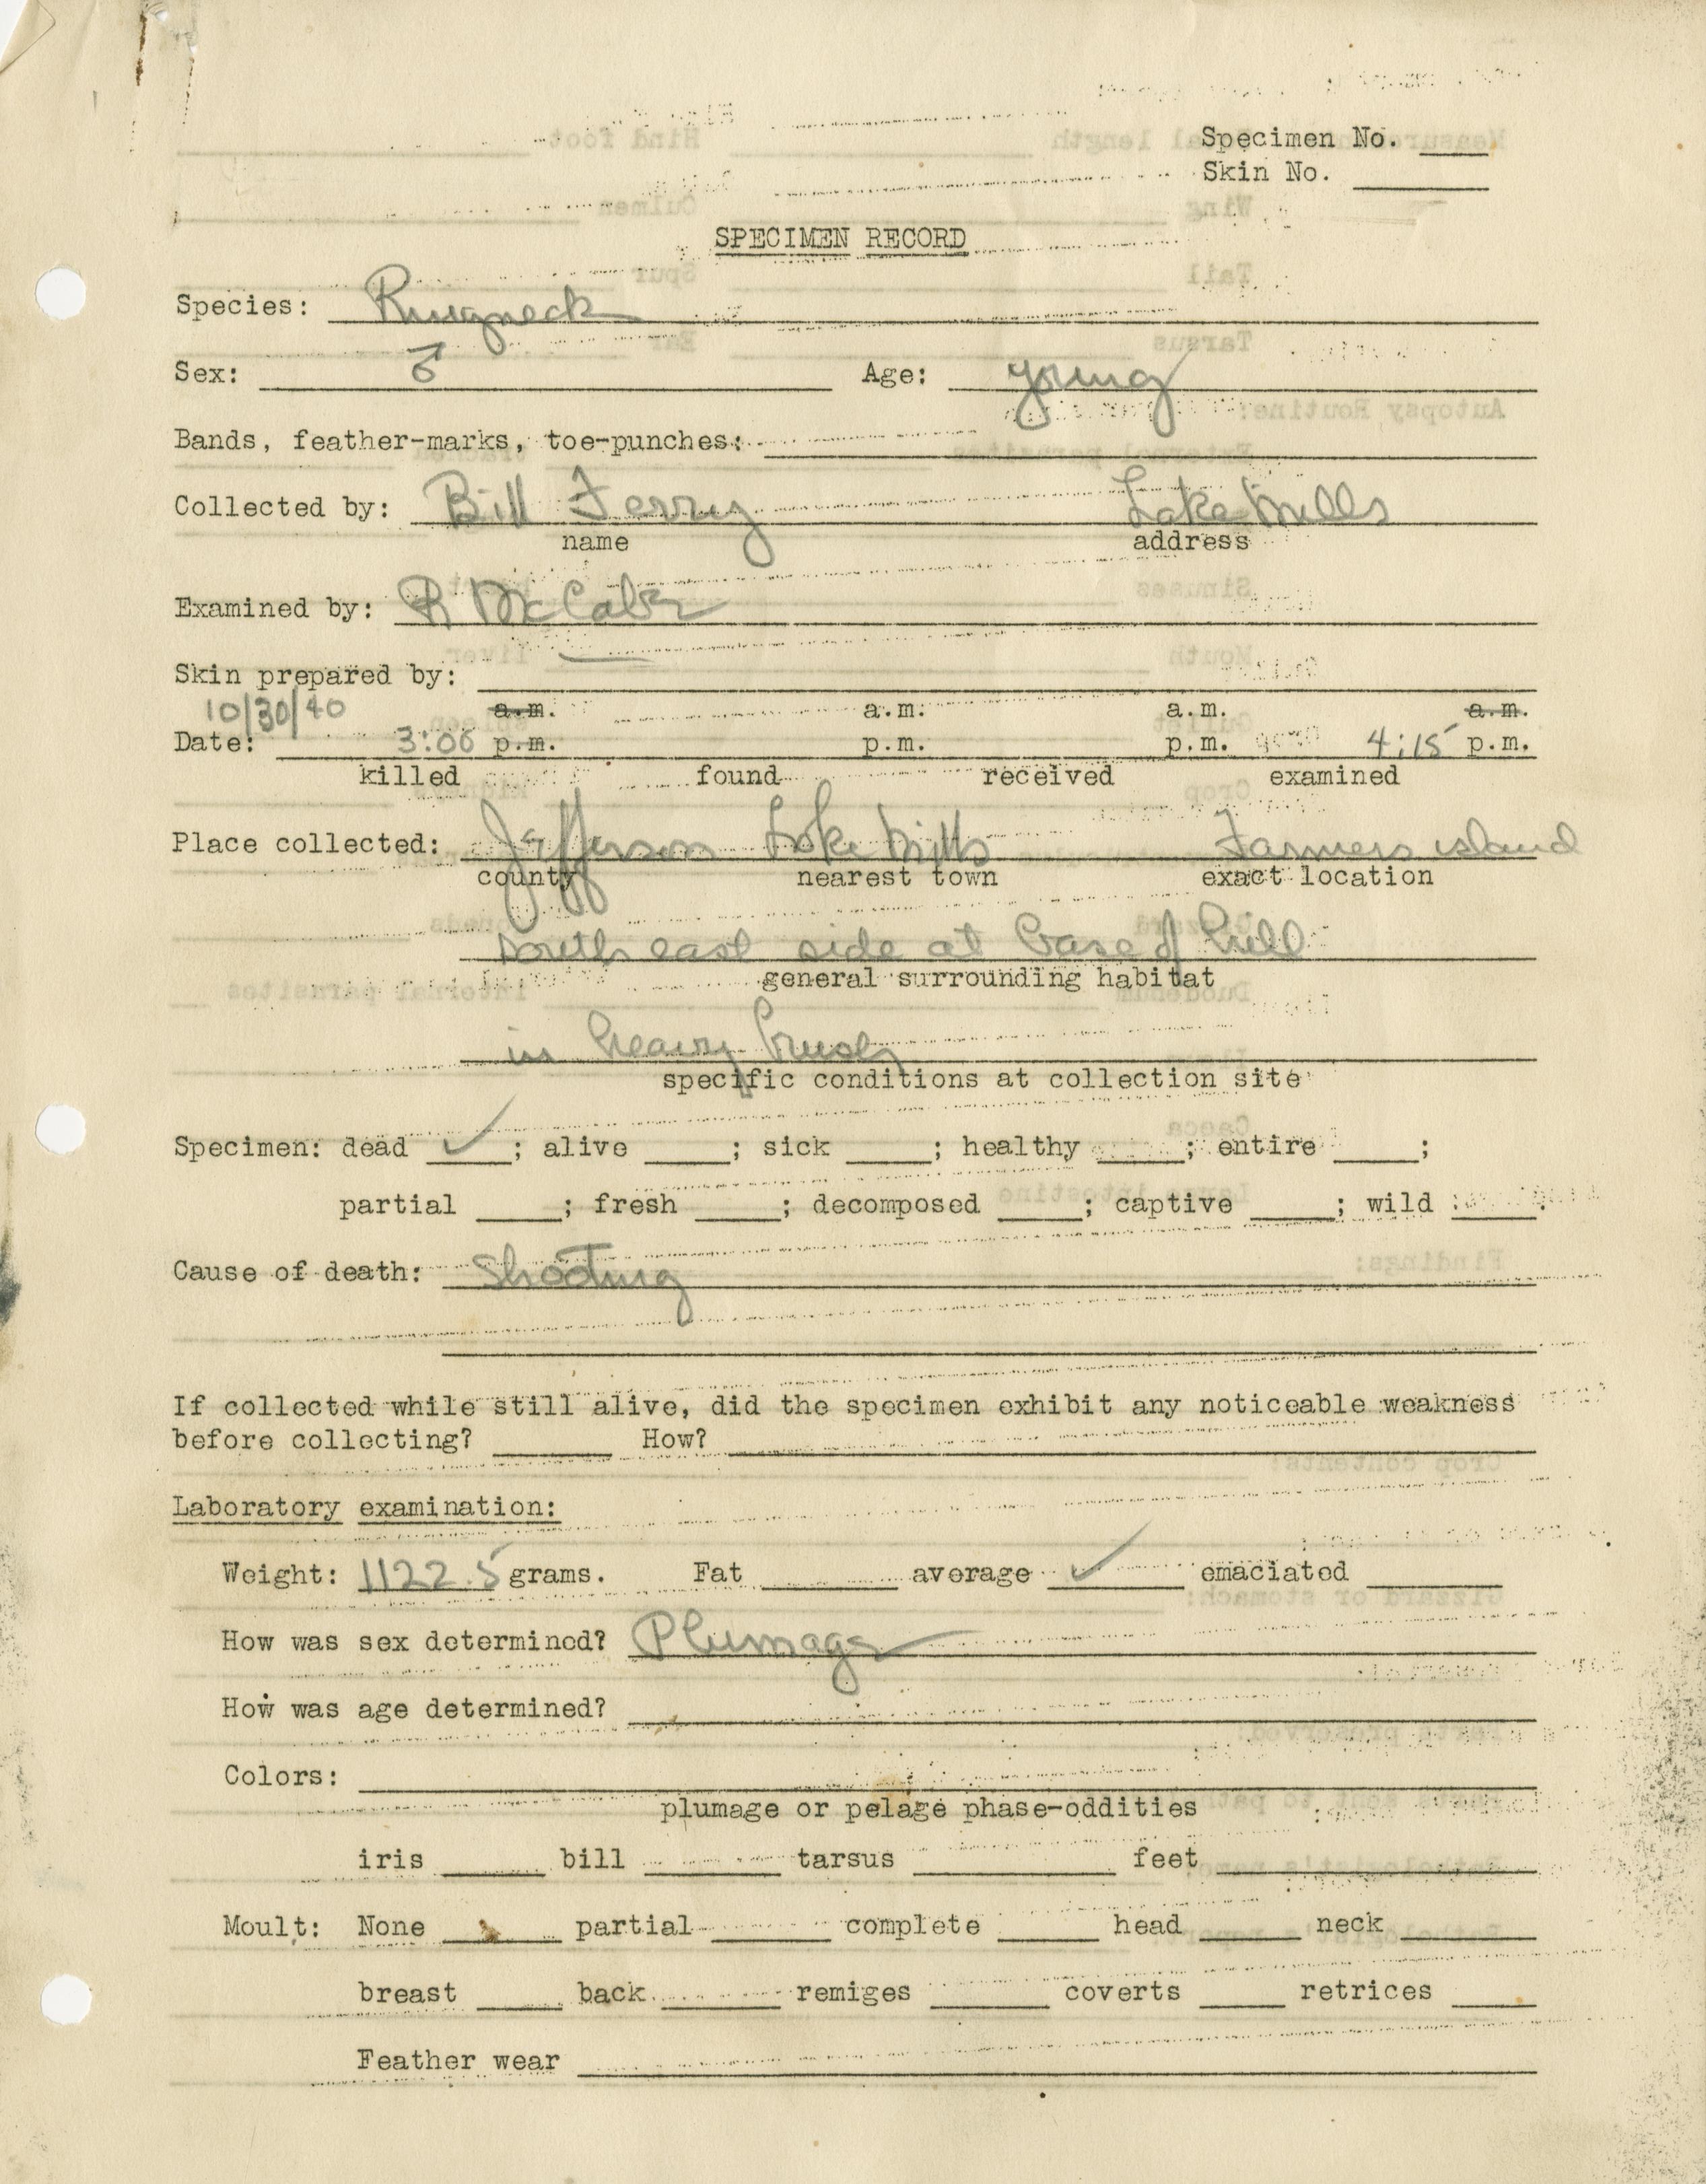 Specimen No. ____
Skin No. ____
SPECIMEN RECORD
Species: Ringneck
Sex: ♂ Age: young
Bands, feather-marks, toe-punches:
Collected by: Bill Ferry Lake Mills
name address
Examined by: R McCabe
Skin prepared by:
10/30/40 a.m. a.m. a.m. a.m.
Date: 3:00 p.m. p.m. p.m. 4:15 p.m.
killed found received examined
Place collected: Jefferson Lake Mills Farmers island
county nearest town exact location
south east side at base of hill
general surrounding habitat
in heavy brush
specific conditions at collection site
Specimen: dead ✓; alive ____; sick ____; healthy ____; entire ____;
partial ____; fresh ____; decomposed ____; captive ____; wild ____.
Cause of death: Shooting
If collected while still alive, did the specimen exhibit any noticeable weakness
before collecting? ____ How? ____
Laboratory examination:
Weight: 1122.5 grams. Fat ____ average ✓ emaciated ____
How was sex determined? Plumage
How was age determined?
Colors:
plumage or pelage phase-oddities
iris ____ bill ____ tarsus ____ feet ____
Moult: None ____ partial ____ complete ____ head ____ neck ____
breast ____ back ____ remiges ____ coverts ____ retrices ____
Feather wear